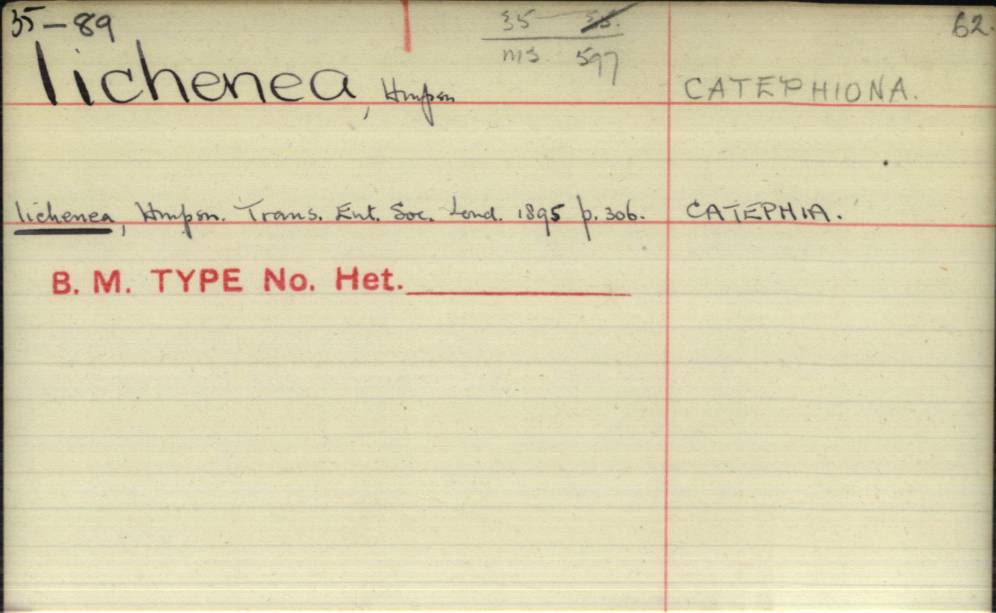 35-89
35 35.
62.
lichenea, Hmpsn CATEPHIONA.
MS 597
lichenea, Hmpsn. Trans. Ent. Soc. Lond. 1895 p. 306. CATEPHIA.
B. M. TYPE No. Het.